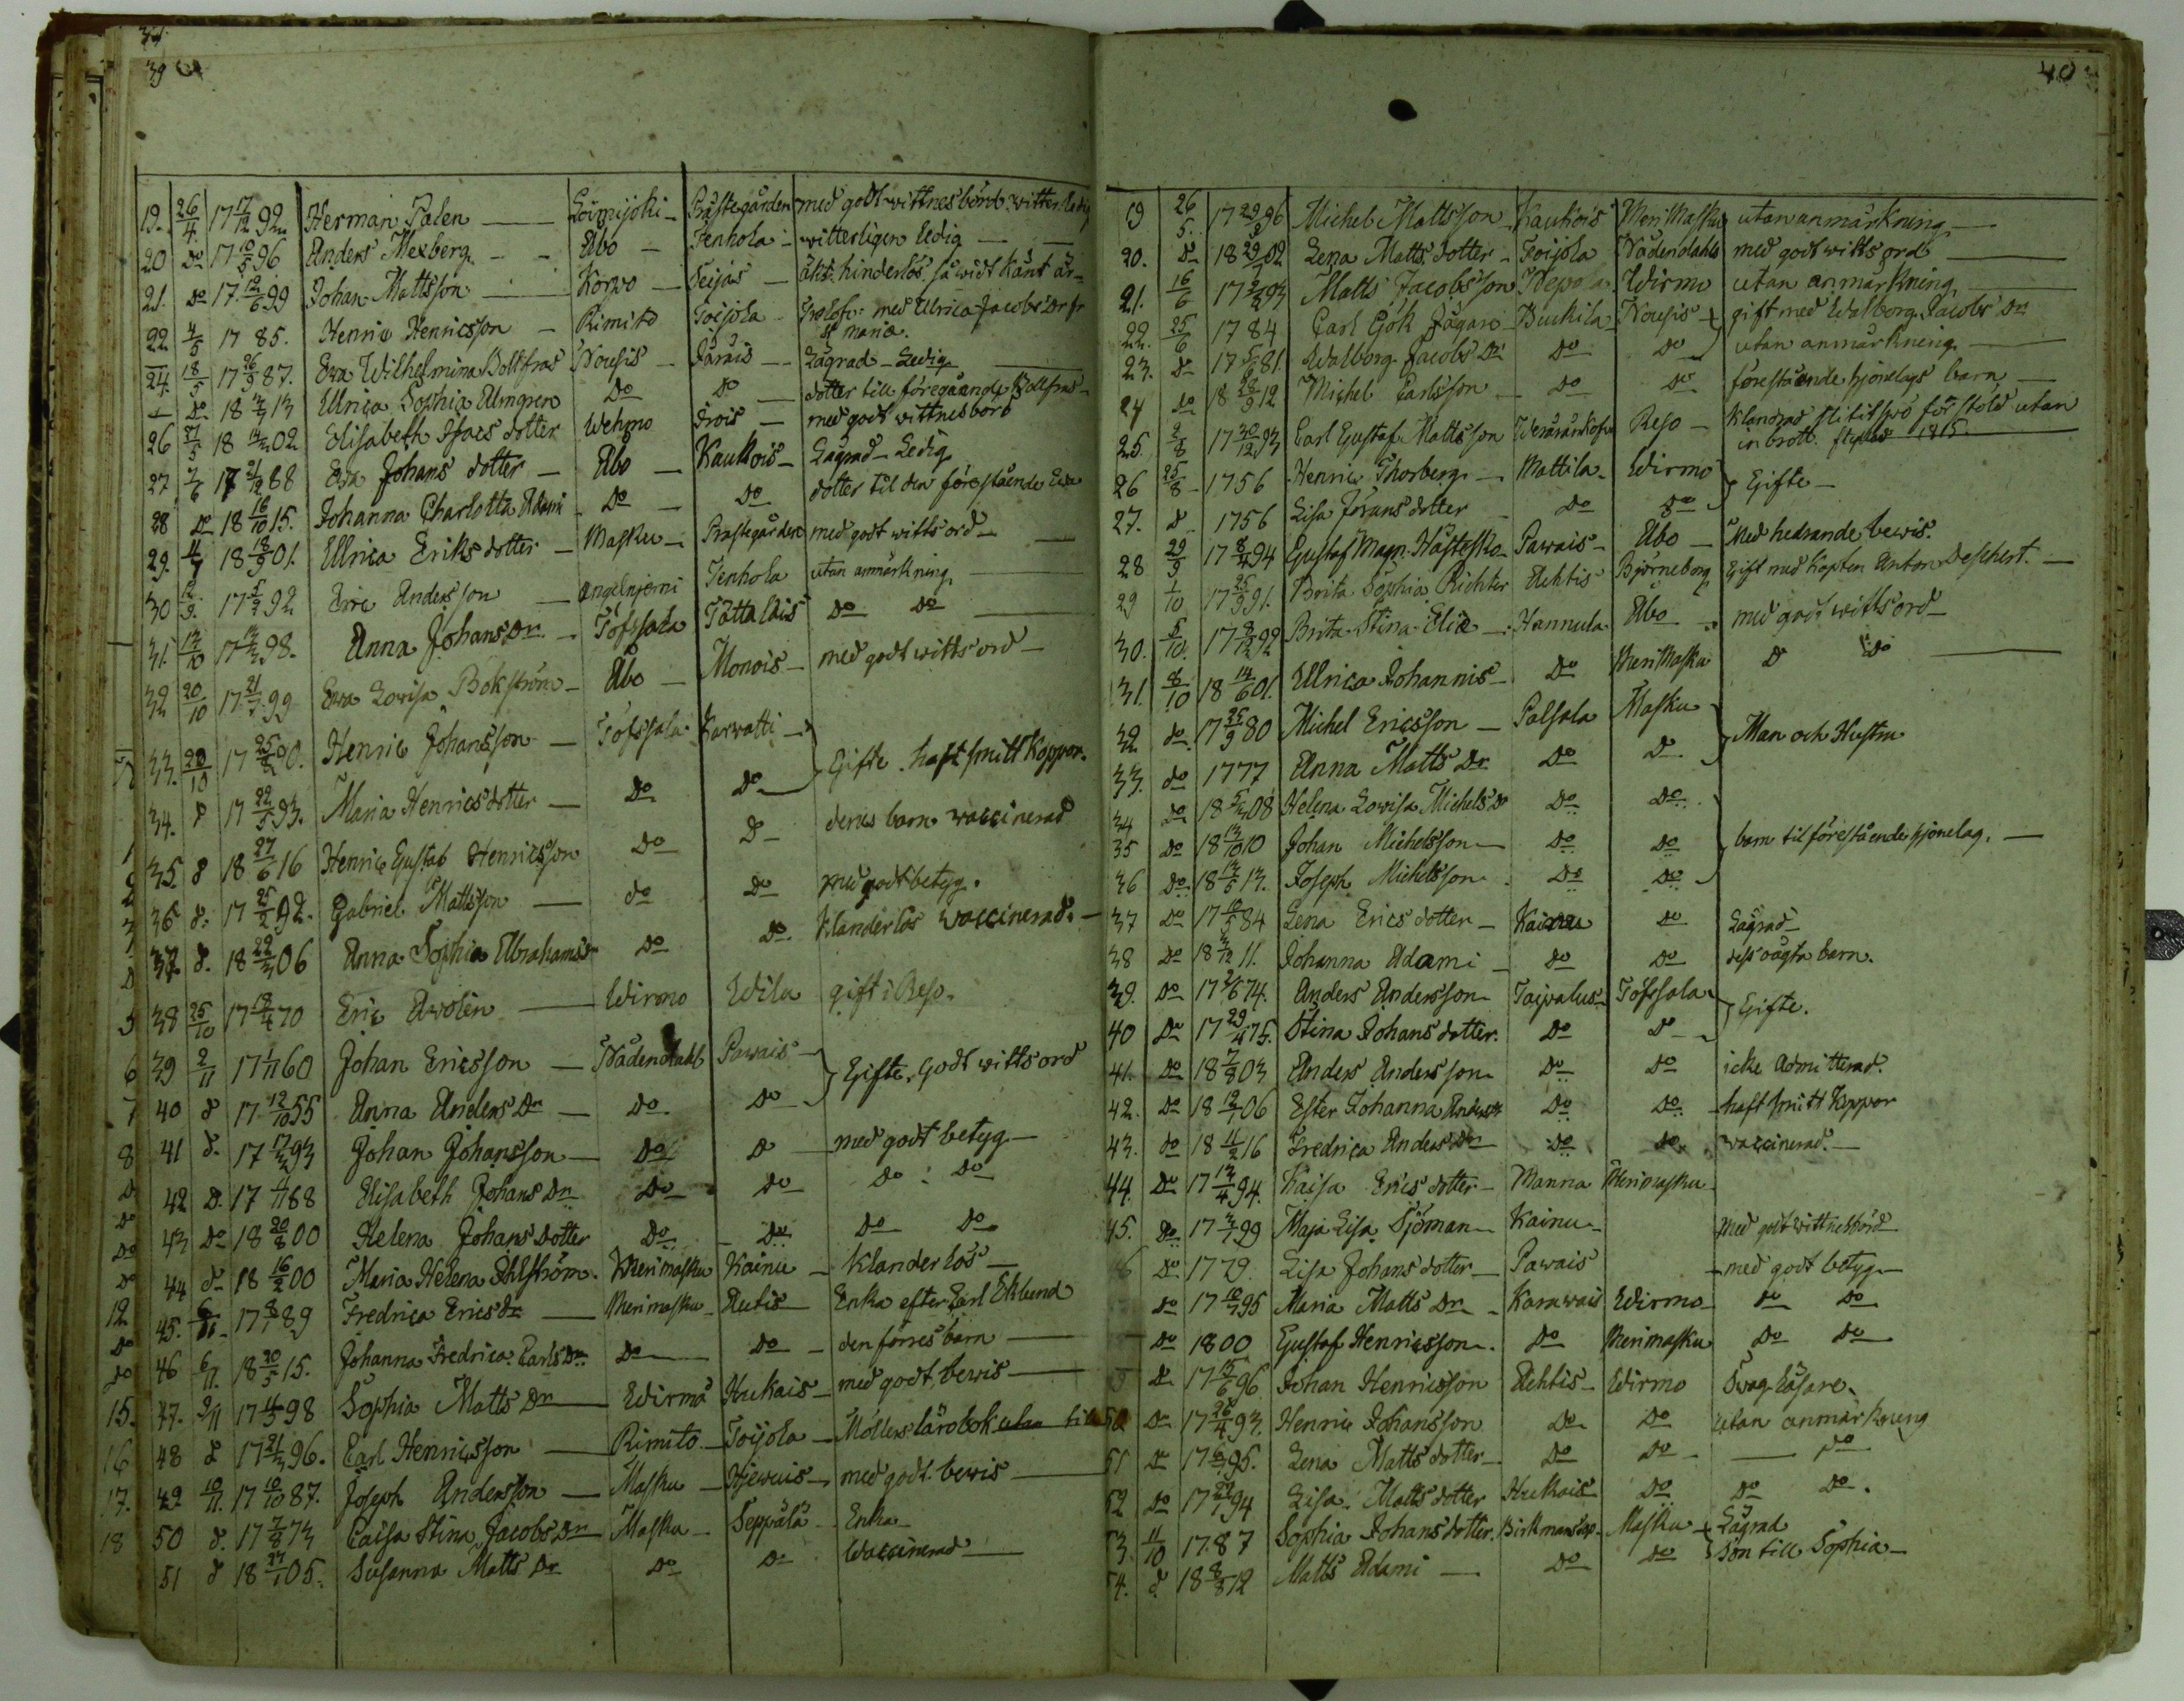 39
19. 26/4. 17 17/12 92. Herman Palen Loimijoki Prästegården med godt wittnesbörd witterl. ledig
20 Do 17 10/5 96 Anders Mexberg Åbo Tenhola witterligen ledig
21. Do 17 12/6 99 Johan Mattsson Korpo Seijäs äkt. hinderlös så widt känt är
22 4/5 17 85. Henric Henricsson Rimito Toijola Trolofv: med Ulrica Jacobs Dr fr
St Mariæ.
24. 18/5 17 26/9 87. Ewa Wilhelmina Bollfras Nousis Järäis Lägrad Ledig
Do 18 13 Ulrica Sophia Almgren Do Do dotter till föregående Bollfras
26 27/5 18 02 Elisabeth Isacs dotter Wehmo Frois med godt wittnesbörd
27 7/6 17 21/12 88 Ewa Johans dotter Åbo Kaukois Lägrad Ledig
28 Do 18 16/10 15. Johanna Charlotta Adami Do Do dotter til den förestående Ewa
29. 4/7 18 18/9 01. Ulrica Eriks dotter Masku Prästegården med godt wittsord
30 12/9. 17 92 Eric Andersson Angelnjemi Tenhola utan anmärkning
31. 13/10 17 98. Anna Johans Dr Töfsala Tättalais Do Do
32 20/10 17 21/7 99 Ewa Lowisa Bökström Åbo Monois med godt wittsord
33. 20/10 17 25/2 90. Henric Johansson Töfssala Karwatti } Gifte. haft smitt koppor.
34. d 17 22/5 93. Maria Henricsdotter Do Do
35 d 18 27/6 16 Henric Gustaf Henricsson Do D deras barn waccinerad
36 d. 17 25/2 92. Gabriel Mattsson do Do med godt betyg.
37 d. 18 22/3 06 Anna Sophia Abrahams dr Do Do Klanderlös waccinerad.
38 25/10 17 18/4 70 Eric Awolin Wirmo Wila gift i Reso.
39 2/11 17 1/11 60 Johan Ericsson Nådendahl Pawais } Gifte. Godt wittsord
40 d 17 12/10 55 Anna Anders Dr Do Do
41 d. 17 93 Johan Johansson Do D med godt betyg
42 D. 17 4/11 88 Elisabeth Johans Dr Do Do Do Do
43 Do 18 20/8 00 Helena Johans dotter Do Do Do Do
44 d 18 16/2 00 Maria Helena Ahlström Merimasku Kainu Klanderlös
45. 6/11 17 8/1 89 Fredrica Erics Dr Merimasku Autis Enka efter Carl Eklund
46 6/11. 18 20/5 15. Johanna Fredrica Carls Dr Do Do den förres barn
47. 9/11 17 98 Sophia Matts Dr Wirmo Hukais med godt bewis
48 d 17 21/3 96. Carl Henricsson Rimito Toijola Möllers lärobok utan till
49 10/11. 17 10/10 87. Joseph Andersson Masku med godt bewis
50 d. 17 7/8 73 Caisa Stina Jacobs Dr Masku Seppälä Enka
51 d 18 27/1 05. Susanna Matts Dr Do Do Waccinerad
40
19 26/5. 17 96 Michel Mattsson Kaukois Merimasku utan anmärkning
20. D 18 02 Lena Matts dotter Toijola Nådendahls med godt witts ord
21. 16/6 17 93 Matts Jacobsson Wirmo utan anmärkning
22. 25/6 17 84 Carl Gök Jägare Kukila Nousis } gift med Walborg Jacobs Dr
23. D 17 81. Walborg Jacobs Dr Do Do utan anmärkning
24 do 18 28/9 12 Michel Carlsson Do Do förestående hjonelags barn
25. 2/8 17 30/12 93 Carl Gustaf Mattsson Reso Klandrad slitit spö för stöld utan
inbrott. 1815.
26 25/8 1756 Henric Thorberg Mattila Wirmo } Gifte
27. d 1756 Lisa Görans dotter Do Do
28 29/9 17 8/4 94 Gustaf Magn. Hästesko Pawais Åbo Med hedrande bewis.
29 1/10 17 25/9 91. Brita Sophia Richter Ahtis Björneborg Gift med Kapten Anton Deschert.
30. 5/10. 17 8/12 92 Brita Stina Eliæ Hannula Åbo med godt wittsord
31. 8/10 18 14/6 01. Ulrica Johannis Do Merimasku D Do
32 do. 17 25/9 80 Michel Ericsson Palsala Masku } Man och Hustru
33. do 1777 Anna Matts Dr Do D
34 do 18 08 Helena Lowisa Michels Dr Do Do
35 do 18 13/10 10 Johan Michelsson Do Do } barn til förestående hjonelag.
36 Do. 18 13/5 13. Joseph Michelsson Do Do
37 Do 17 10/5 84 Lena Erics dotter Kainu Do Lägrad
38 Do 18 11. Johanna Adami Do Do dess oägta barn.
39. Do 17 74. Anders Andersson Taipalus Töfssala } Gifte.
40 Do 17 29/4 75. Stina Johans dotter. Do D
41. Do 18 7/8 03 Anders Andersson Do Do icke Admitterad.
42. Do 18 06 Ester Johanna Anders dr Do Do haft smitt koppor
43. do 18 11/2 16 Fredrica Anders Dr Do Do waccinerad.
44. Do 17 13/4 94. Kaisa Erics dotter Manna Merimasku
45. Do 17 99 Maja Lisa Sjöman Kainu med godt wittnesbörd
6 Do 1779. Lisa Johans dotter Pawais med godt betyg
do 17 95 Maria Matts Dr Karawais Wirmo Do Do
Do 1800 Gustaf Henricsson Do Merimasku Do Do
9 D 17 15/6 96 Johan Henricsson Ahtis Wirmo Swag Läsare.
50 Do 17 26/4 93. Henric Johansson Do Do Utan anmärkning
51 D 17 95. Lena Matts dotter Do Do Do
52 Do 17 94 Lisa Matts dotter Hukais Do Do Do.
53. 11/10 1787 Sophia Johans dotter. Masku } Lägrad
54. d. 18 8/8 12 Matts Adami Do Do Son till Sophia
1
2
3
5
6
7
8
12
15.
16
17.
18